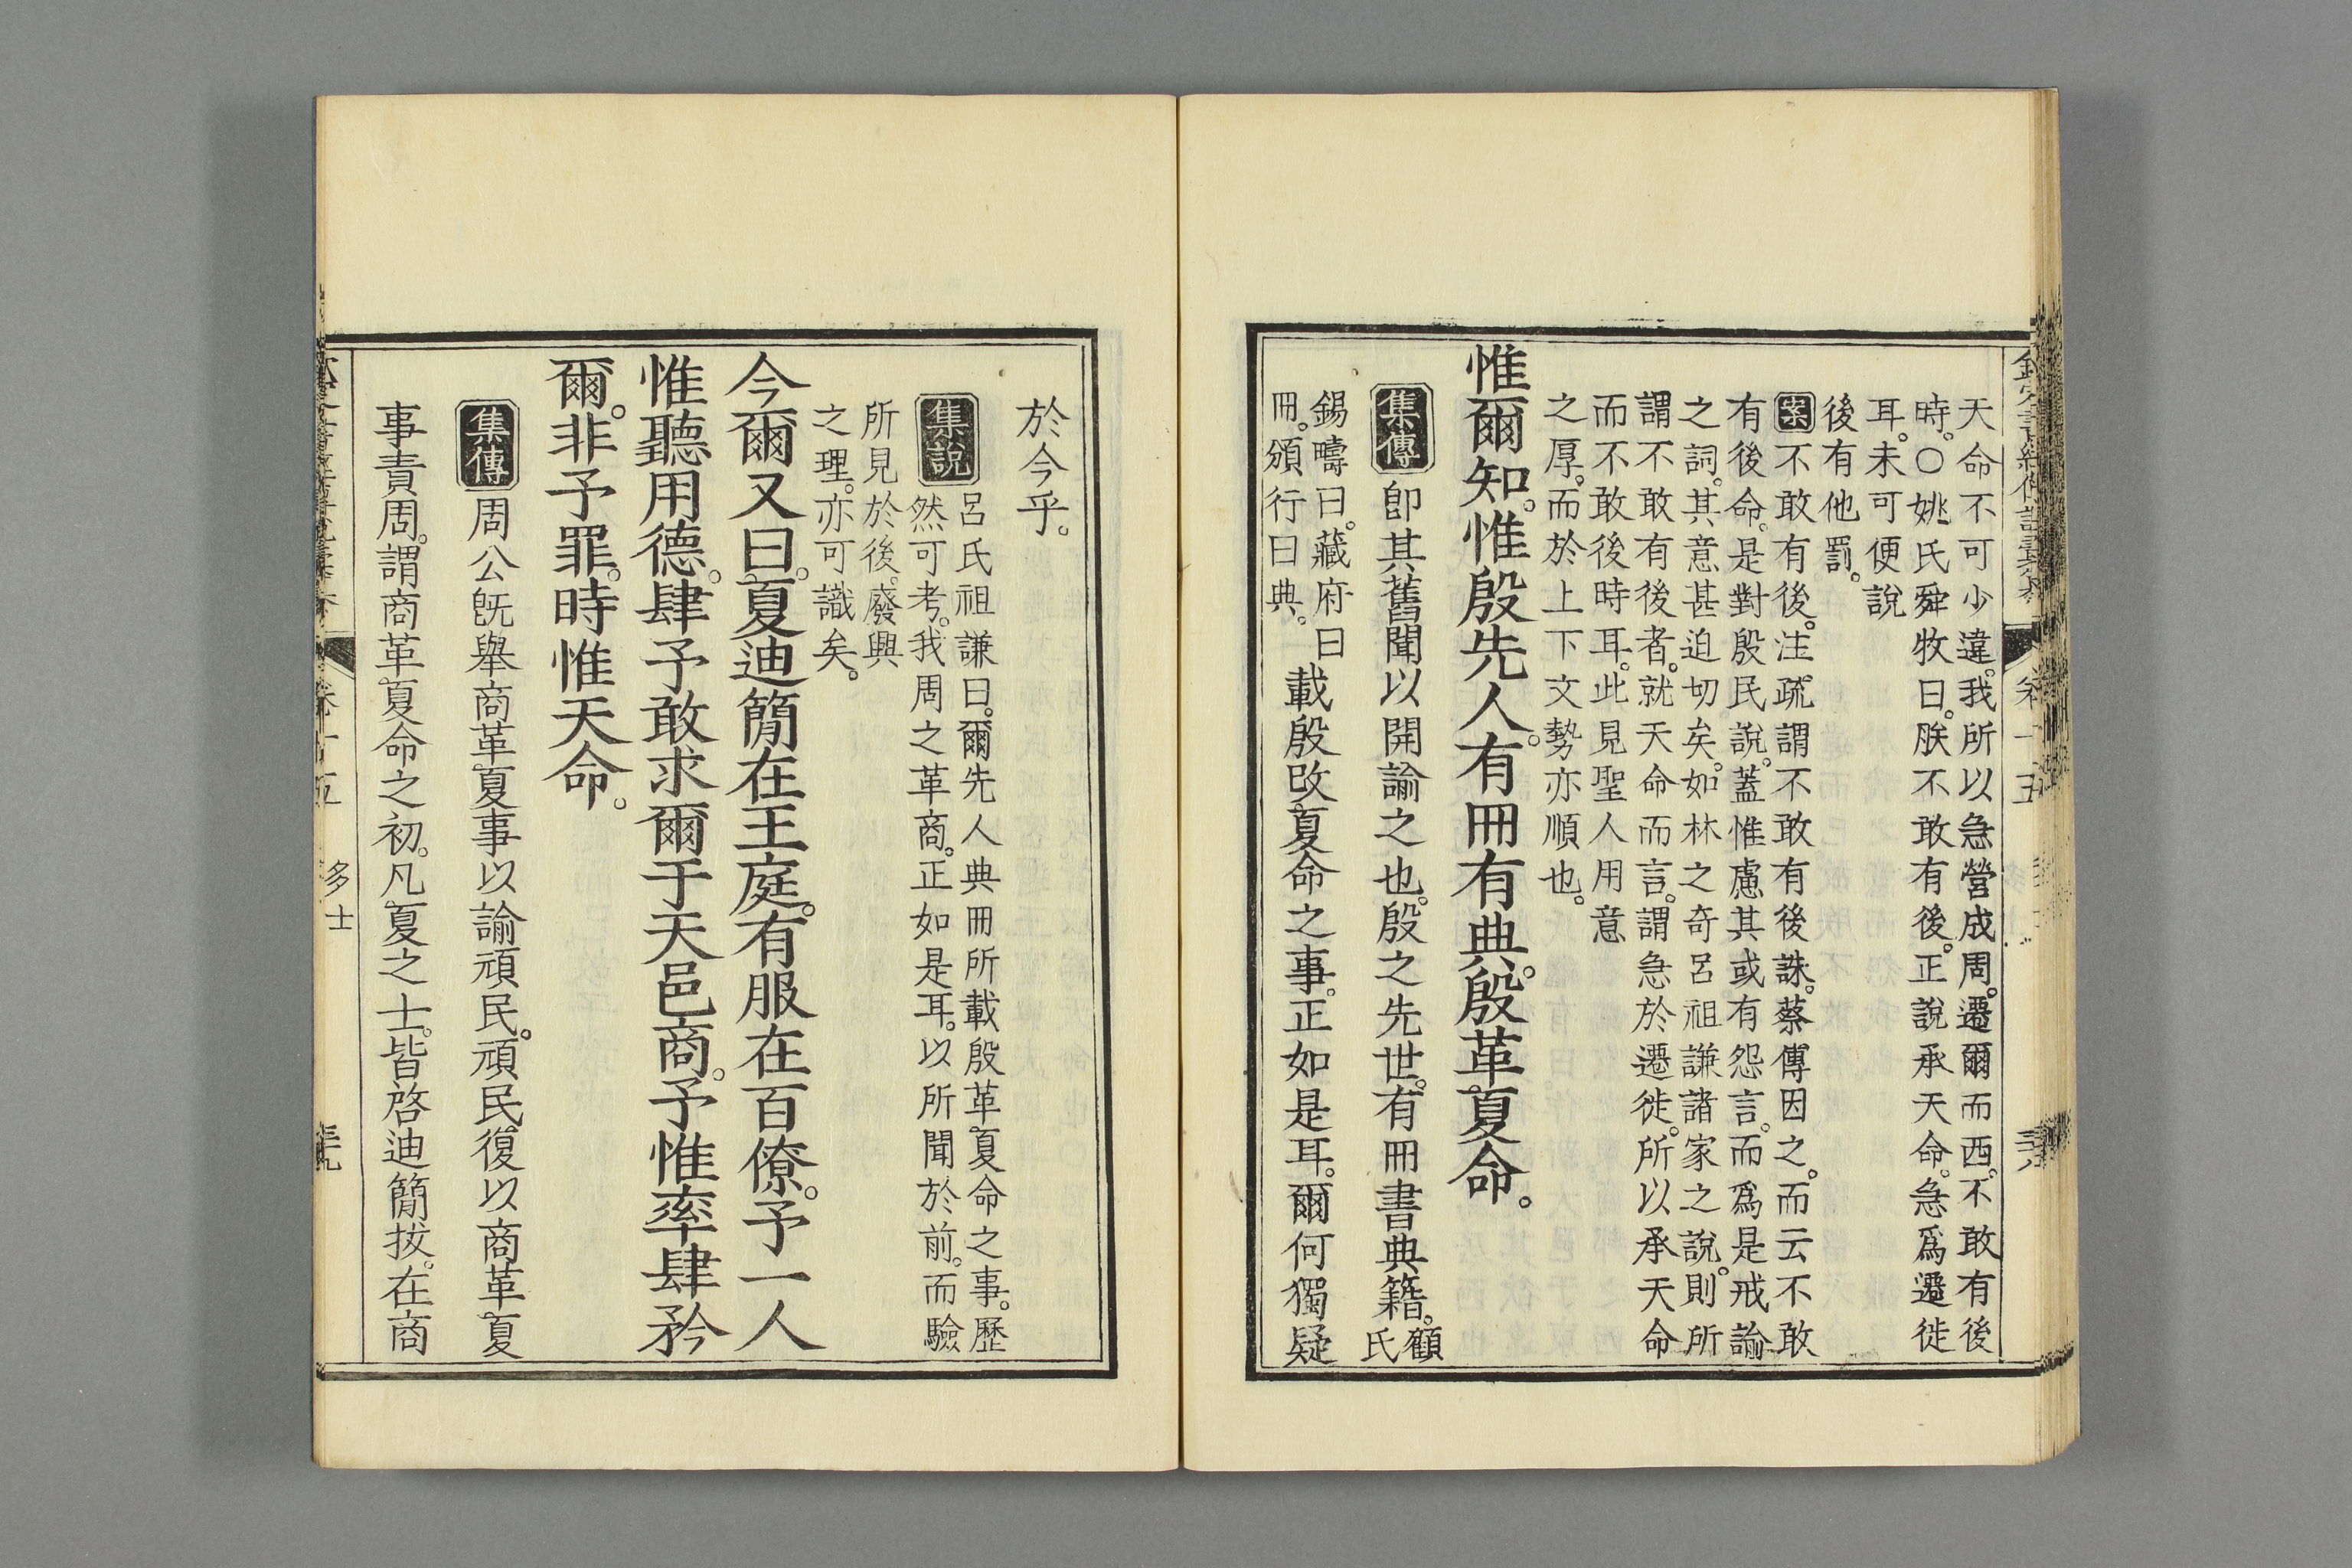 天命不可少違。我所以急營成周。遷爾而西。不敢有後
時。○姚氏舜牧曰。朕不敢有後。正說承天命。急爲遷徙
耳。未可便說
後有他罰。
案不敢有後。注疏謂不敢有後誅。蔡傳因之。而云不敢
有後命。是對殷民說。蓋惟慮其或有怨言。而爲是戒諭
之詞。其意甚迫切矣。如林之奇呂祖謙諸家之說。則所
謂不敢有後者。就天命而言。謂急於遷徙。所以承天命
而不敢後時耳。此見聖人用意
之厚。而於上下文勢亦順也。
惟爾知。惟殷先人。有冊有典。殷革夏命。
集傳 卽其舊聞以開諭之也。殷之先世。有冊書典籍。顧氏
錫疇曰。藏府曰
冊。頒行曰典。載殷改夏命之事。正如是耳。爾何獨疑
於今乎。
集說 呂氏祖謙曰。爾先人典冊所載殷革夏命之事。歷
然可考。我周之革商。正如是耳。以所聞於前。而驗
所見於後。廢興
之理。亦可識矣。
今爾又曰。夏迪簡在王庭。有服在百僚。予一人
惟聽用德。肆予敢求爾于天邑商。予惟率肆矜
爾。非予罪。時惟天命。
集傳 周公旣舉商革夏事以諭頑民。頑民復以商革夏
事責周。謂商革夏命之初。凡夏之士。皆啓迪簡拔。在商
多士